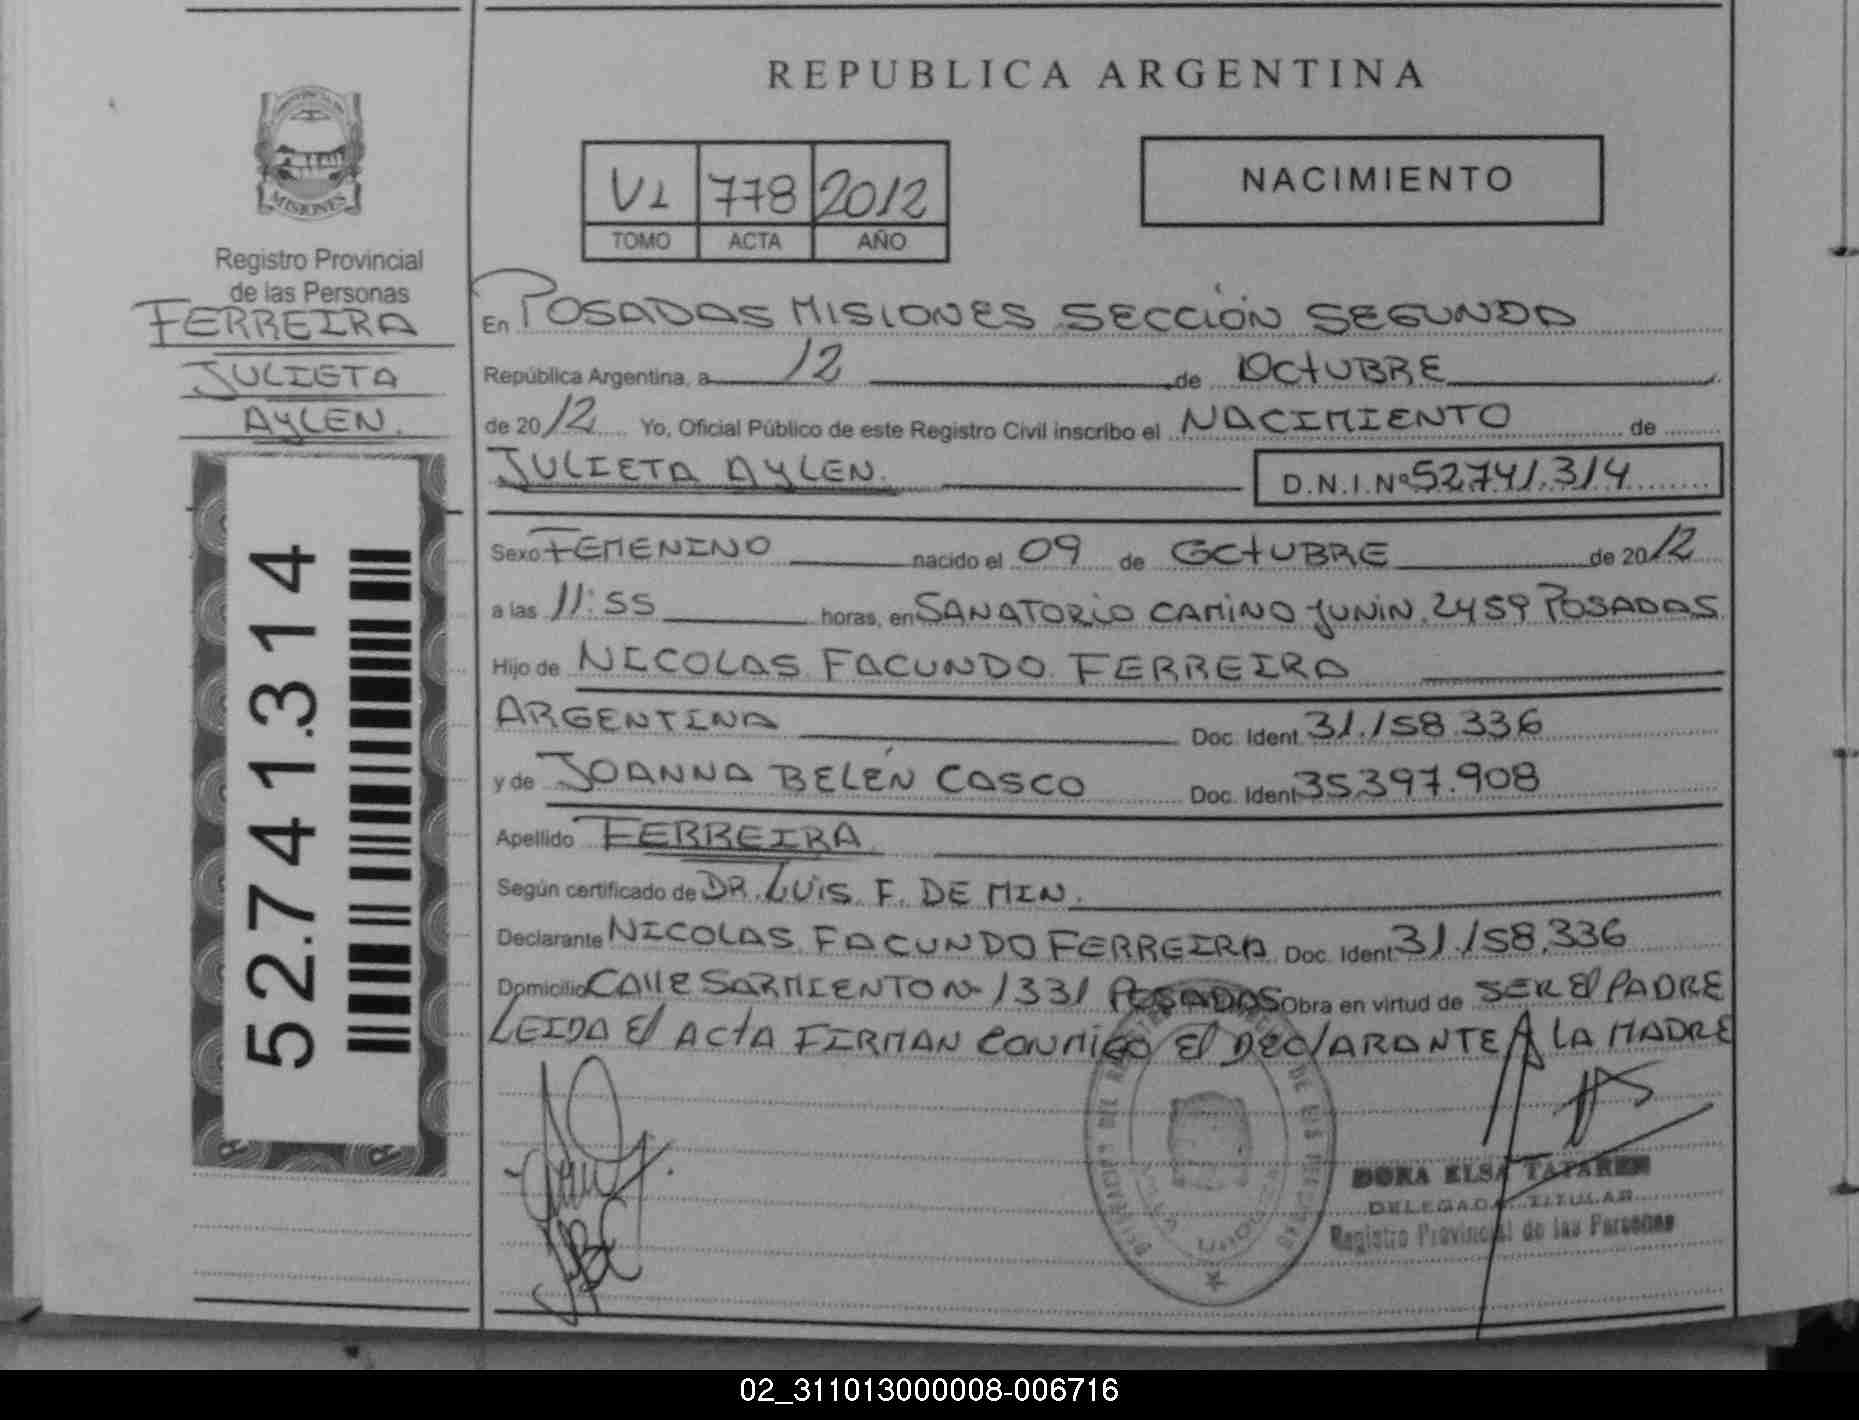 REPUBLICA ARGENTINA
PROVINCIA DE
MISIONES
Registro Provincial
de las Personas
FERREIRA
JULIETA
AYLEN.
52.741.314
V1 778 2012
TOMO ACTA AÑO
NACIMIENTO
En POSADAS MISIONES SECCIÓN SEGUNDA
República Argentina, a 12 de OCTUBRE
de 2012 Yo, Oficial Público de este Registro Civil inscribo el NACIMIENTO de
JULIETA AYLEN. D.N.I.Nº 52.741.314
Sexo FEMENINO nacido el 09 de OCTUBRE de 2012
a las 11:55 horas, en SANATORIO CAMINO JUNIN 2459 POSADAS
Hijo de NICOLAS FACUNDO FERREIRA
ARGENTINA Doc. Ident. 31.158.336
y de JOANNA BELÉN CASCO Doc. Ident. 35.397.908
Apellido FERREIRA
Según certificado de DR. LUIS F. DE MIN.
Declarante NICOLAS FACUNDO FERREIRA Doc. Ident. 31.158.336
Domicilio CAllE SARMIENTO Nº 1331 POSADAS Obra en virtud de SER El PADRE
LEIDA El ACTA FIRMAN CONMIGO El DEClARANTE LA MADRE
DORA ELSA
DELEGADA TITULAR
Registro Provincial de las Personas
02_311013000008-006716